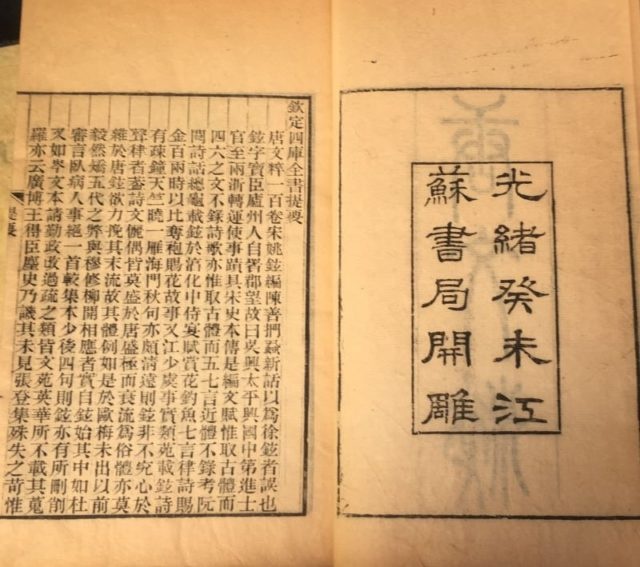 光緒癸未江
蘇書局開雕
欽定四庫全書提要
唐文粹一百卷宋姚鉉編陳善捫蝨新話以爲徐鉉者誤也
鉉字寶臣廬州人自署郡望故曰吳興太平興國中第進士
官至兩浙轉運使事蹟具宋史本傳是編文賦惟取古體而
四六之文不錄詩歌亦惟取古體而五七言近體不錄考阮
閱詩話總龜載鉉於淳化中侍宴賦賞花釣魚七言律詩賜
金百兩時以比奪袍賜花故事又江少虞事實類苑載鉉詩
有疎鐘天竺曉一雁海門秋句亦頗清遠則鉉非不究心於
聲律者蓋詩文儷偶皆莫盛於唐盛極而衰流爲俗體亦莫
雜於唐鉉欲力挽其末流故其體例如是於歐梅未出以前
毅然矯五代之弊與穆修柳開相應者實自鉉始其中如杜
審言臥病人事絕一首較集本少後四句則鉉亦有所刪削
又如岑文本請勤政改過疏之類皆文苑英華所不載其蒐
羅亦云廣博王得臣麈史乃譏其未見張登集殊失之苛惟
提要